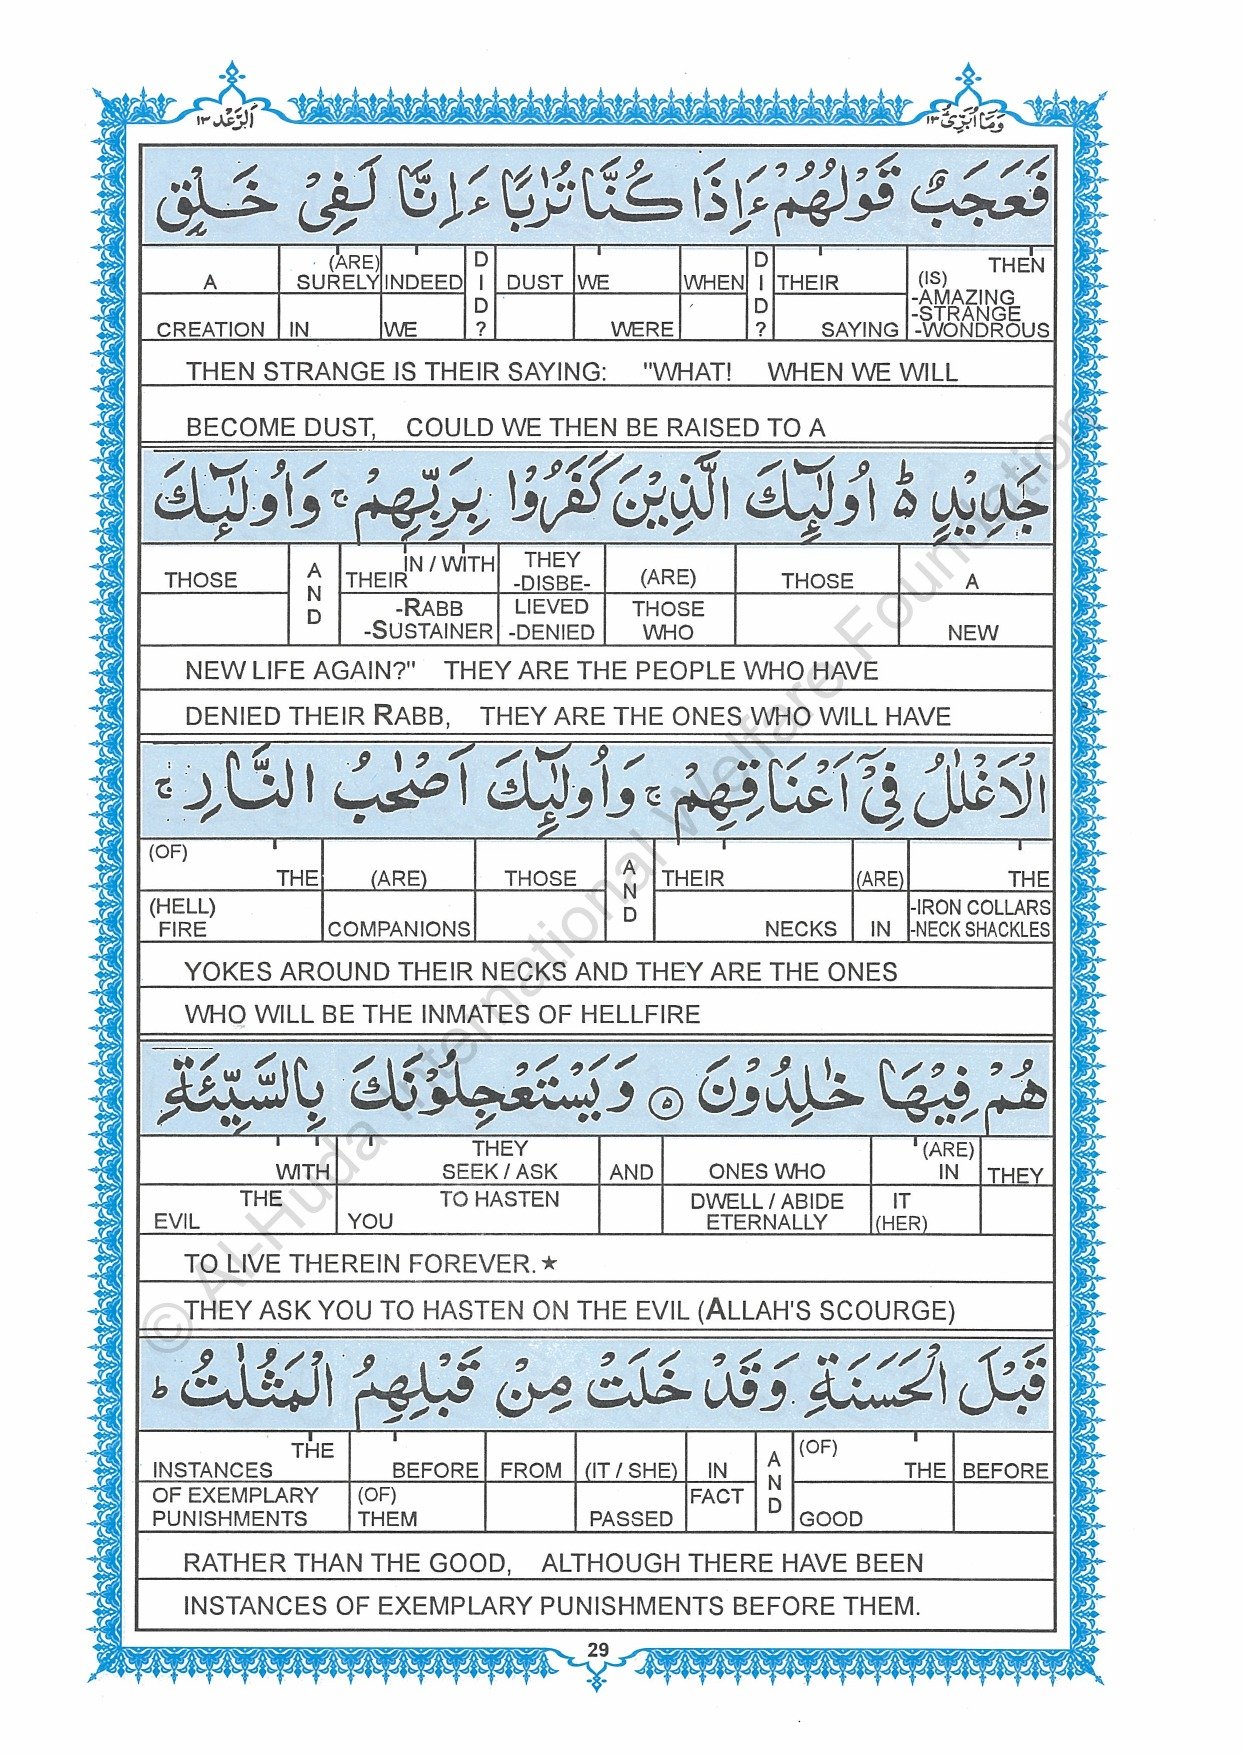 اَلرَّعْد ١٣
وَمَآ اُبَرِّئُ ١٣
فَعَجَبٌ قَوْلُهُمْ ءَاِذَا كُنَّا تُرٰبًا ءَاِنَّا لَفِیْ خَلْقٍ
THEN (IS) -AMAZING -STRANGE -WONDROUS
THEIR SAYING
DID?
WHEN
WE WERE
DUST
DID?
INDEED WE
(ARE) SURELY IN
A CREATION
THEN STRANGE IS THEIR SAYING: "WHAT! WHEN WE WILL
BECOME DUST, COULD WE THEN BE RAISED TO A
جَدِیْدٍ ؕ اُولٰٓئِكَ الَّذِیْنَ كَفَرُوْا بِرَبِّهِمْ ۚ وَاُولٰٓئِكَ
A NEW
THOSE
(ARE) THOSE WHO
THEY -DISBE- LIEVED -DENIED
IN / WITH THEIR -RABB -SUSTAINER
AND
THOSE
NEW LIFE AGAIN?" THEY ARE THE PEOPLE WHO HAVE
DENIED THEIR RABB, THEY ARE THE ONES WHO WILL HAVE
الْاَغْلٰلُ فِیْٓ اَعْنَاقِهِمْ ۚ وَاُولٰٓئِكَ اَصْحٰبُ النَّارِ ۚ
THE -IRON COLLARS -NECK SHACKLES
(ARE) IN
THEIR NECKS
AND
THOSE
(ARE) COMPANIONS
(OF) THE (HELL) FIRE
YOKES AROUND THEIR NECKS AND THEY ARE THE ONES
WHO WILL BE THE INMATES OF HELLFIRE
هُمْ فِیْهَا خٰلِدُوْنَ ۝٥ وَیَسْتَعْجِلُوْنَكَ بِالسَّیِّئَةِ
THEY
(ARE) IN IT (HER)
ONES WHO DWELL / ABIDE ETERNALLY
AND
THEY SEEK / ASK TO HASTEN YOU
WITH THE EVIL
TO LIVE THEREIN FOREVER.★
THEY ASK YOU TO HASTEN ON THE EVIL (ALLAH'S SCOURGE)
قَبْلَ الْحَسَنَةِ وَقَدْ خَلَتْ مِنْ قَبْلِهِمُ الْمَثُلٰتُ ؕ
BEFORE
(OF) THE GOOD
AND
IN FACT
(IT / SHE) PASSED
FROM
BEFORE (OF) THEM
THE INSTANCES OF EXEMPLARY PUNISHMENTS
RATHER THAN THE GOOD, ALTHOUGH THERE HAVE BEEN
INSTANCES OF EXEMPLARY PUNISHMENTS BEFORE THEM.
29
© Al-Huda International Welfare Foundation